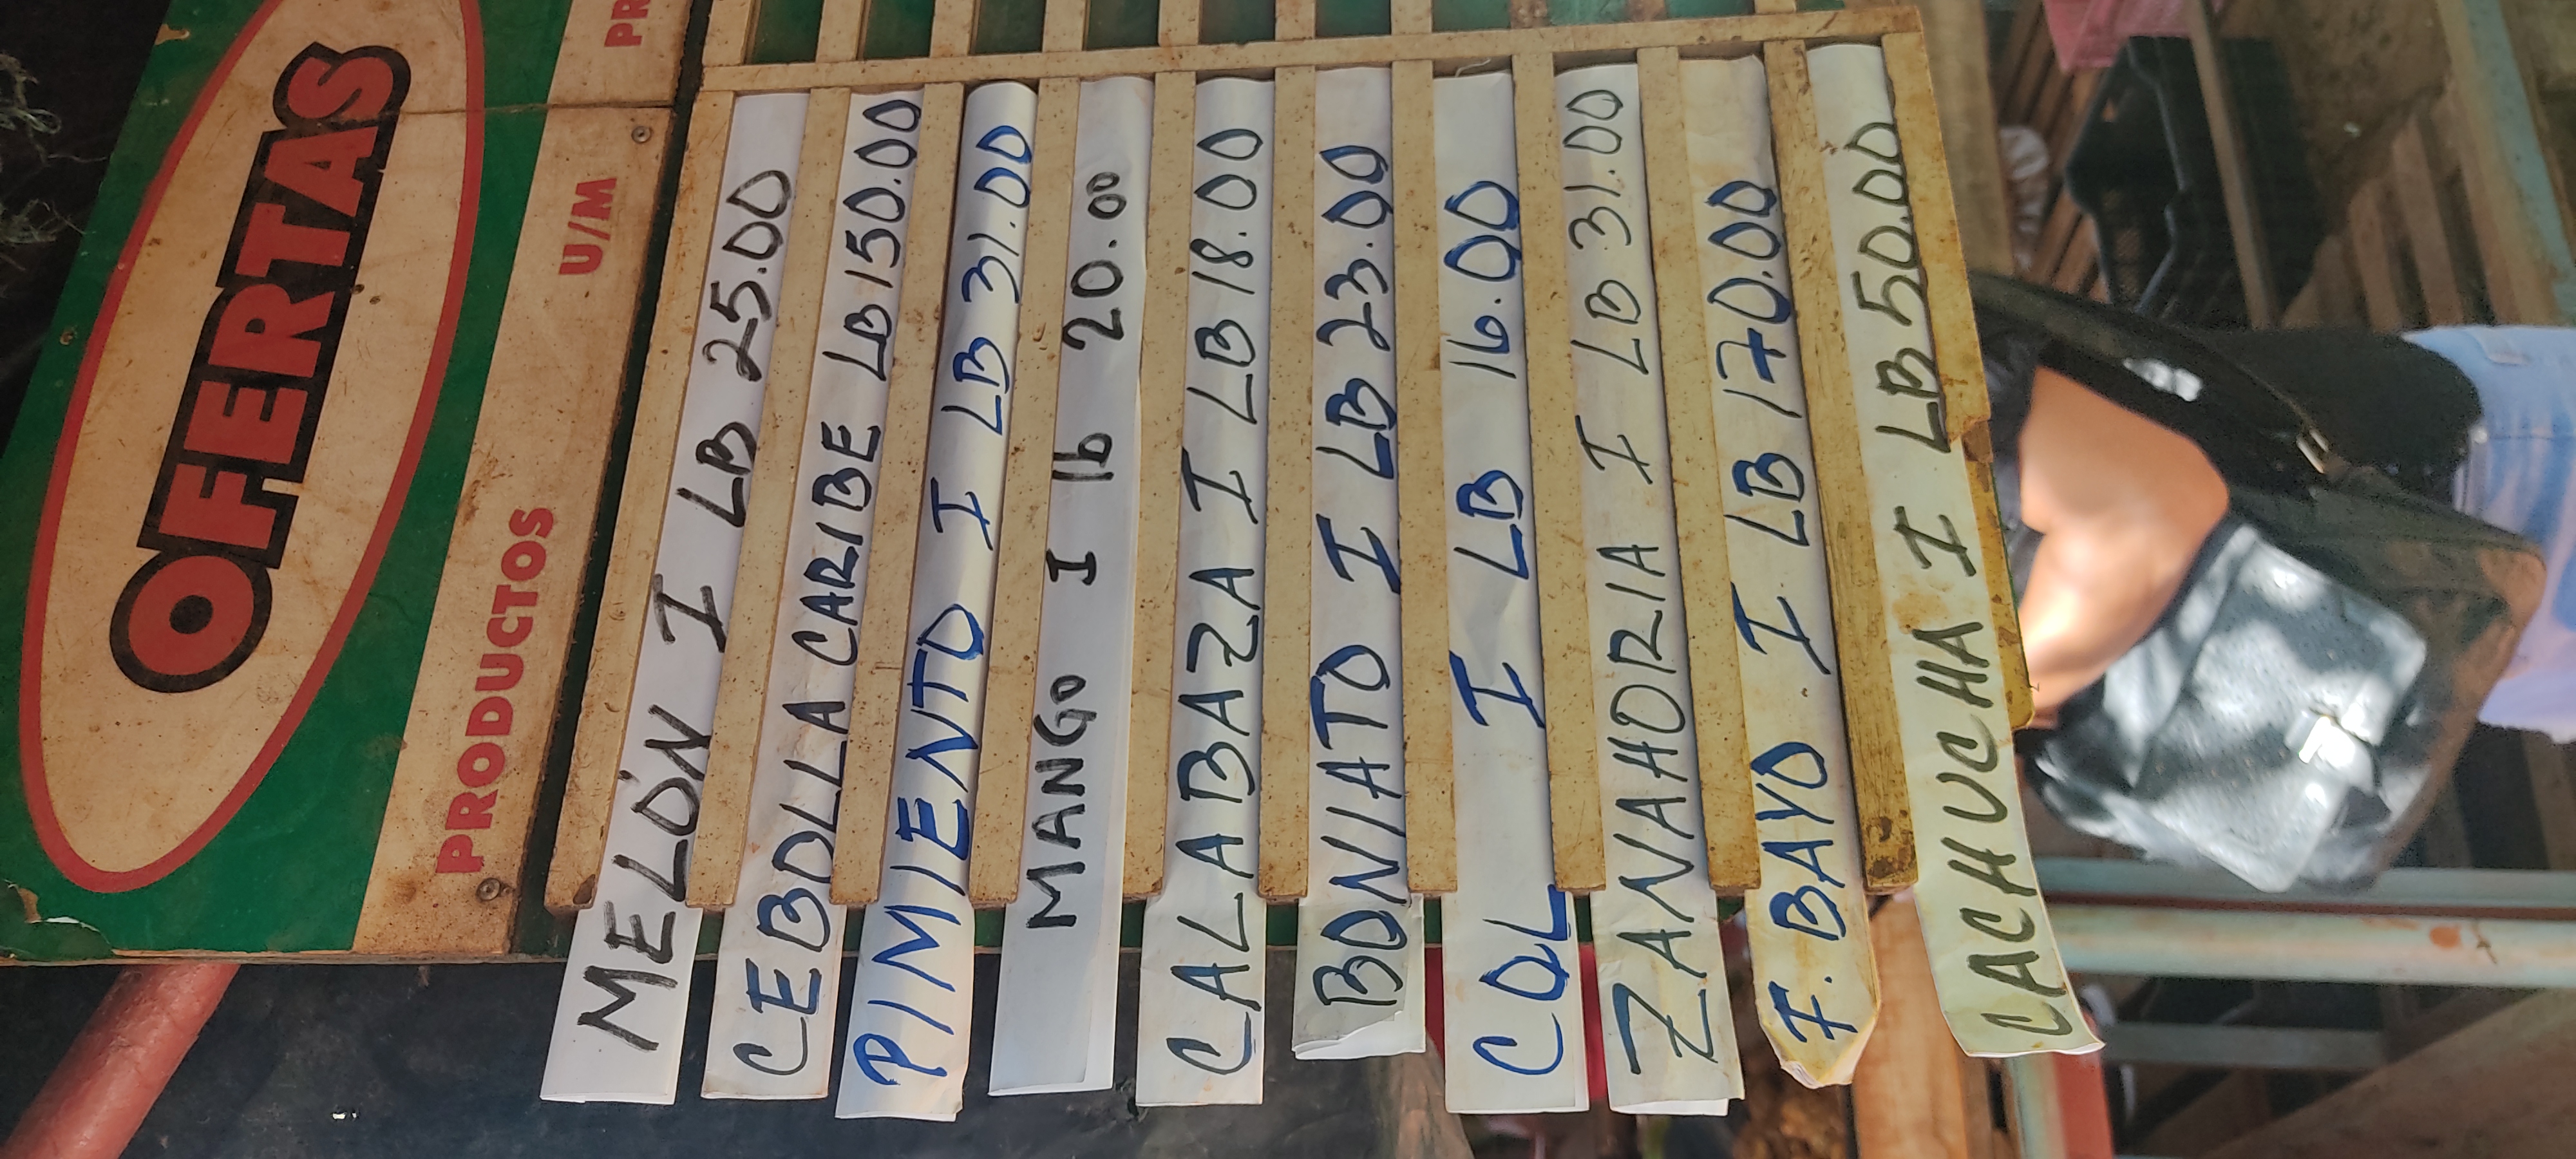 OFERTAS
PRODUCTOS U/M PR
MELÓN I LB 25.00
CEBOLLA CARIBE LB 150.00
PIMIENTO I LB 31.00
MANGO I lb 20.00
CALABAZA I LB 18.00
BONIATO I LB 23.00
COL I LB 16.00
ZANAHORIA I LB 31.00
F. BAYO I LB 170.00
CACHUCHA I LB 50.00